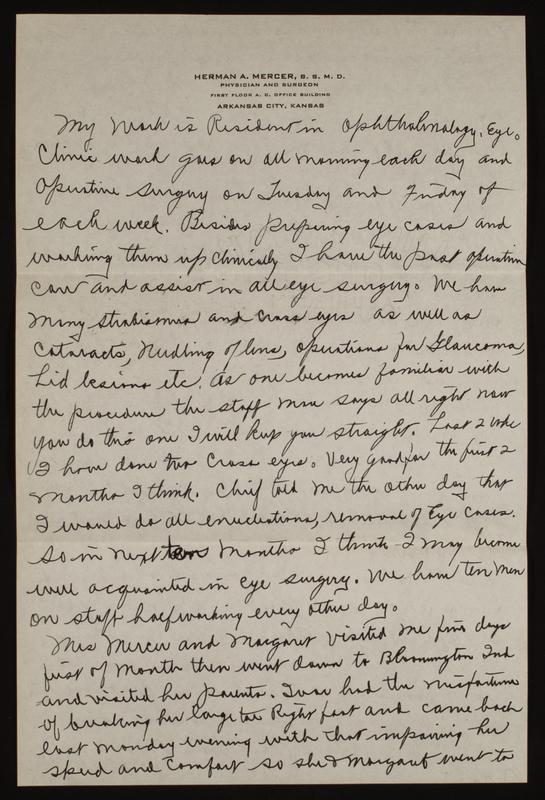 HERMAN A. MERCER, B. S. M. D.
PHYSICIAN AND SURGEON
FIRST FLOOR A. C. OFFICE BUILDING
ARKANSAS CITY, KANSAS
My work is Resident in Ophthalmology, Eye.
Clinic work goes on all morning each day and
operative surgery on Tuesday and Friday of
each week. Besides preparing eye cases and
working them up clinically I have the post operative
care and assist in all eye surgery. We have
many strabismus and cross eyes as well as
Cataracts, Needling of lens, operations for Glaucoma,
Lid lesions etc. As one becomes familiar with
the procedure the staff man says all right now
you do this one I will keep you straight. Last 2 wks
I have done two cross eyes. Very good for the first 2
months I think. Chief told me the other day that
I would do all enucleations, removal of Eye cases.
So in next months I think I may become
well acquainted in eye surgery. We have ten men
on staff half working every other day.
Mrs Mercer and Margaret visited me five days
first of month then went down to Bloomington Ind
and visited her parents. had the misfortune
of breaking her large toe Right foot and came back
last Monday evening with that impairing her
speed and comfort so she & Margaret went to